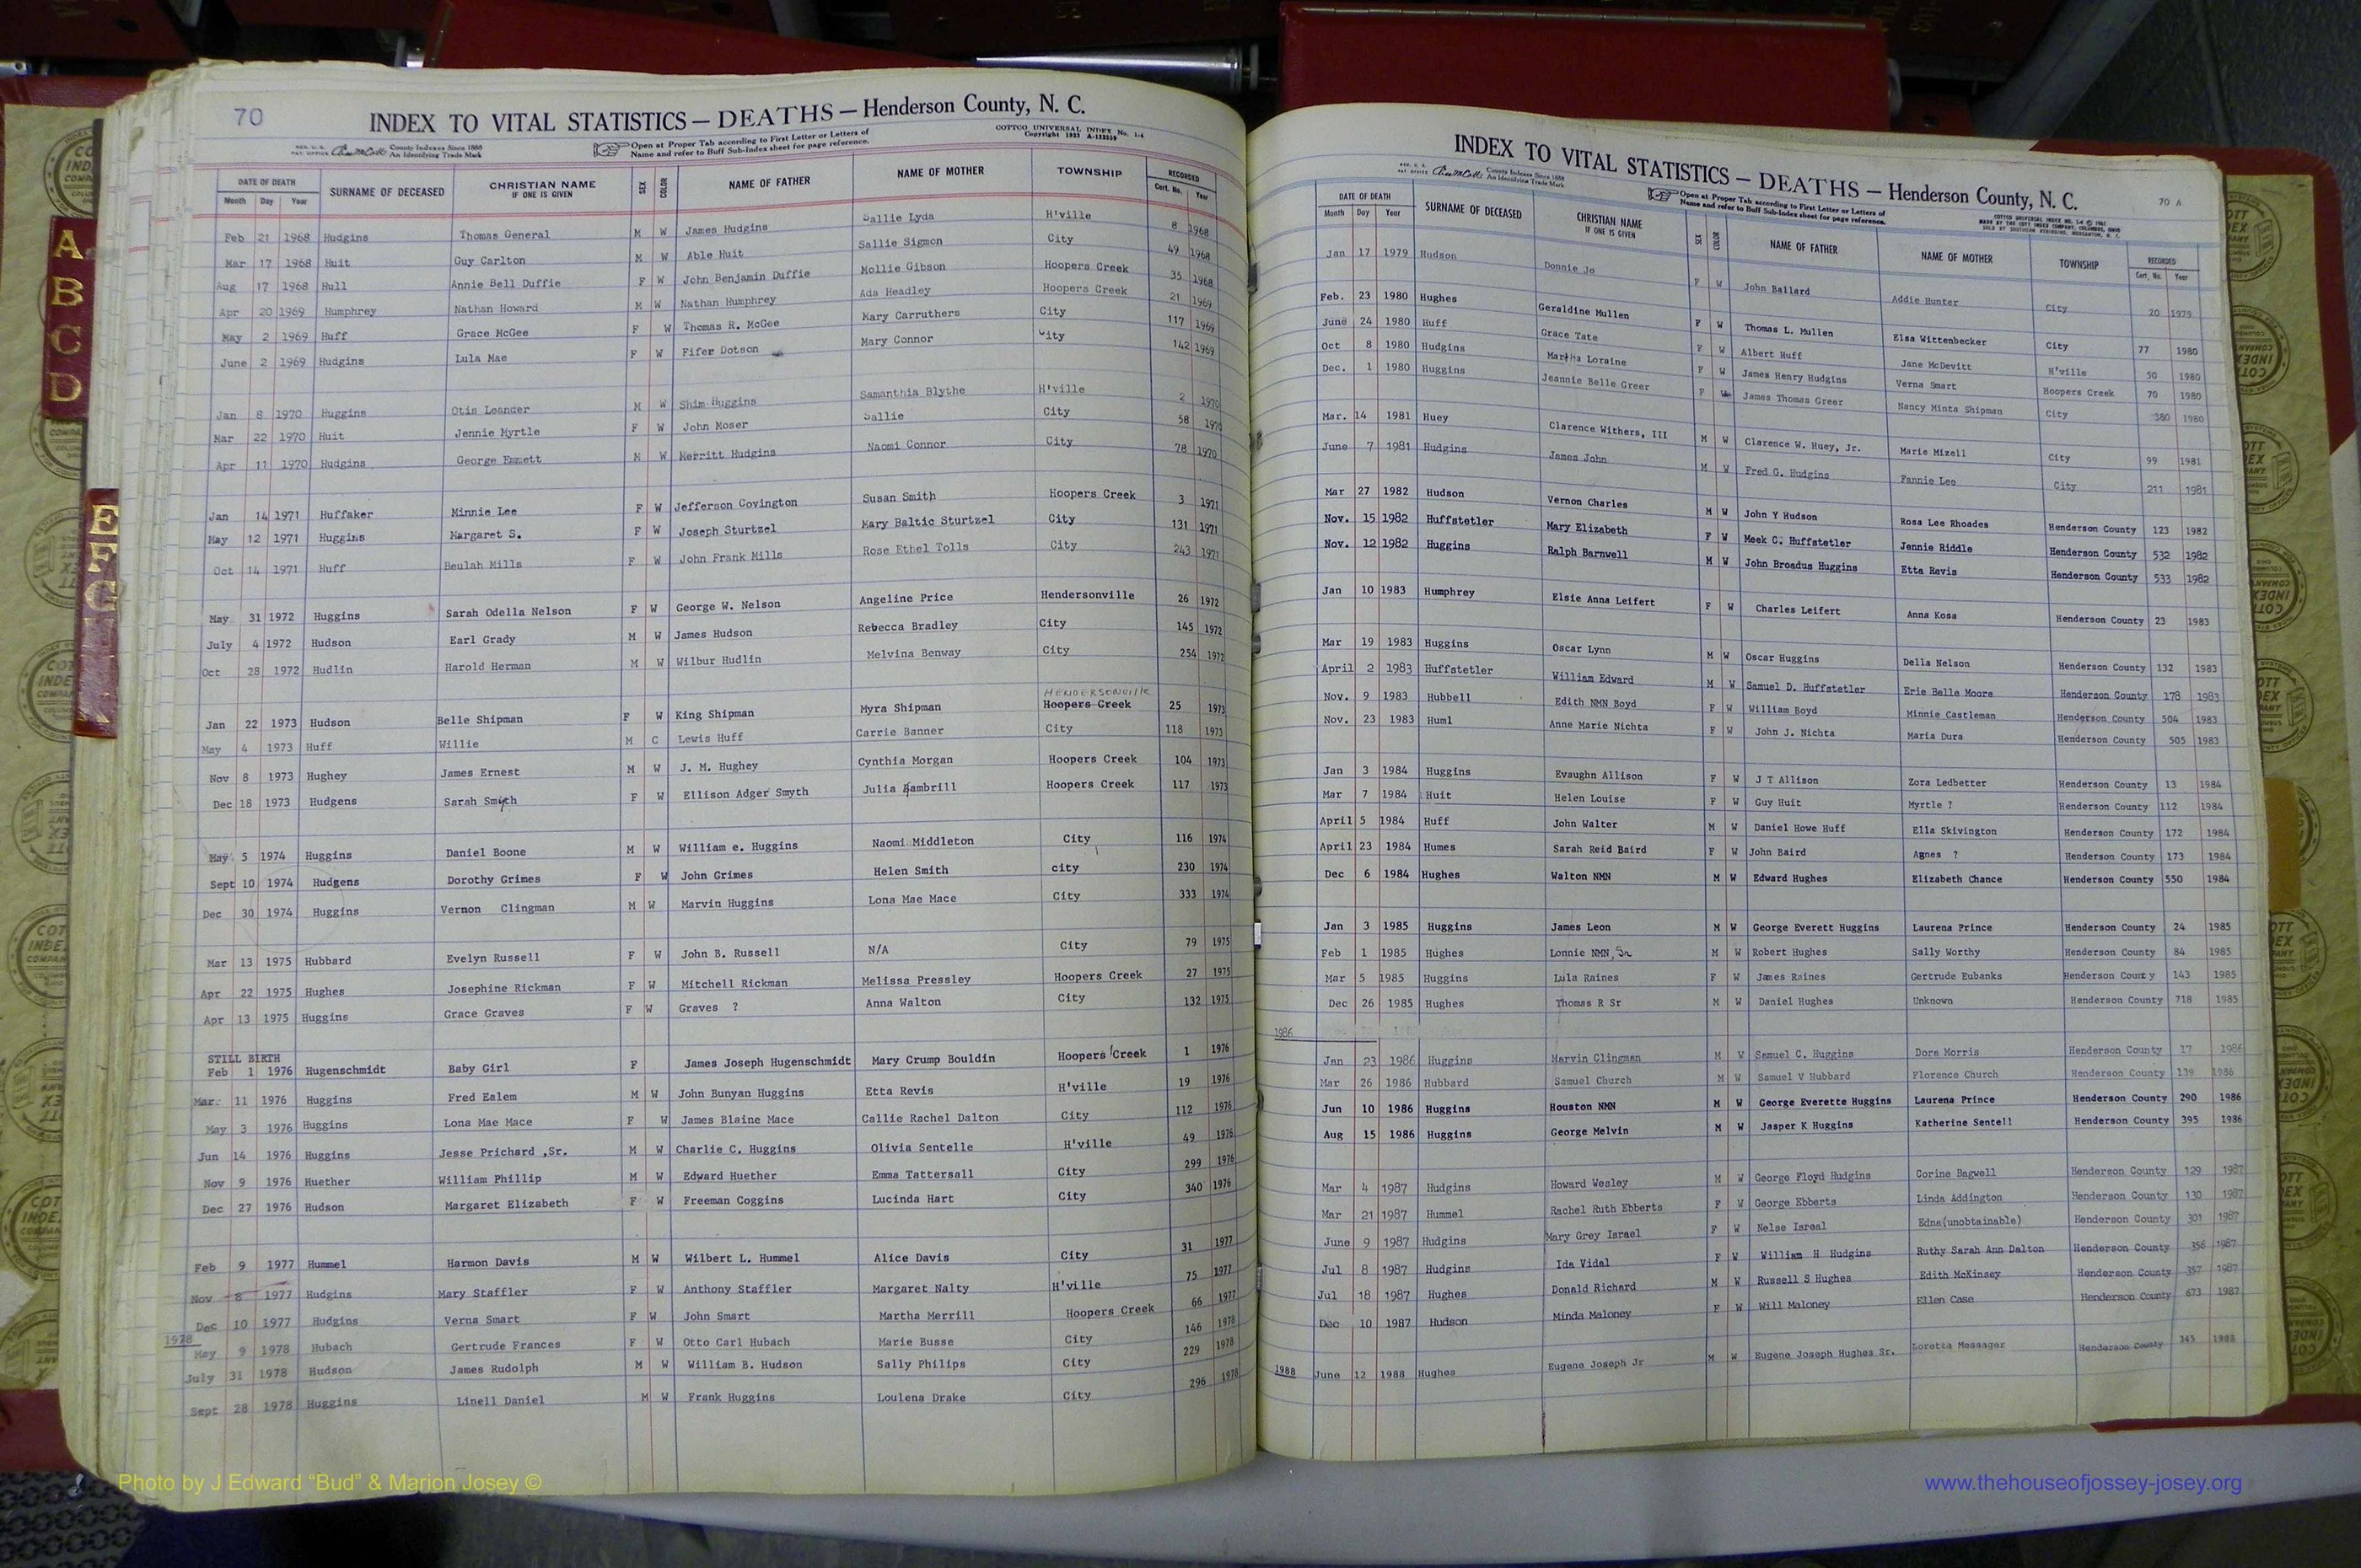 70
INDEX TO VITAL STATISTICS — DEATHS — Henderson County, N. C.
REG. U. S. PAT. OFFICE County Indexes Since 1888 An Identifying Trade Mark
Open at Proper Tab according to First Letter or Letters of Name and refer to Buff Sub-Index sheet for page reference.
COTTCO UNIVERSAL INDEX No. 1-4
DATE OF DEATH Month Day Year SURNAME OF DECEASED CHRISTIAN NAME IF ONE IS GIVEN SEX COLOR NAME OF FATHER NAME OF MOTHER TOWNSHIP RECORDED Cert. No. Year
Feb 21 1968 Hudgins Thomas General M W James Hudgins Sallie Lyda H'ville 8 1968
Mar 17 1968 Huit Guy Carlton M W Able Huit Sallie Sigmon City 49 1968
Aug 17 1968 Hull Annie Bell Duffie F W John Benjamin Duffie Mollie Gibson Hoopers Creek 35 1968
Apr 20 1969 Humphrey Nathan Howard M W Nathan Humphrey Ada Headley Hoopers Creek 21 1969
May 2 1969 Huff Grace McGee F W Thomas R. McGee Mary Carruthers City 117 1969
June 2 1969 Hudgins Lula Mae F W Fifer Dotson Mary Connor City 142 1969
Jan 8 1970 Huggins Otis Leander M W Shim Huggins Samanthia Blythe H'ville 2 1970
Mar 22 1970 Huit Jennie Myrtle F W John Moser Sallie City 58 1970
Apr 11 1970 Hudgins George Emmett M W Merritt Hudgins Naomi Connor City 78 1970
Jan 14 1971 Huffaker Minnie Lee F W Jefferson Covington Susan Smith Hoopers Creek 3 1971
May 12 1971 Huggins Margaret S. F W Joseph Sturtzel Mary Baltic Sturtzel City 131 1971
Oct 14 1971 Huff Beulah Mills F W John Frank Mills Rose Ethel Tolls City 243 1971
May 31 1972 Huggins Sarah Odella Nelson F W George W. Nelson Angeline Price Hendersonville 26 1972
July 4 1972 Hudson Earl Grady M W James Hudson Rebecca Bradley City 145 1972
Oct 28 1972 Hudlin Harold Herman M W Wilbur Hudlin Melvina Benway City 254 1972
HENDERSONVIlle
Jan 22 1973 Hudson Belle Shipman F W King Shipman Myra Shipman Hoopers Creek 25 1973
May 4 1973 Huff Willie M C Lewis Huff Carrie Banner City 118 1973
Nov 8 1973 Hughey James Ernest M W J. M. Hughey Cynthia Morgan Hoopers Creek 104 1973
Dec 18 1973 Hudgens Sarah Smyth F W Ellison Adger Smyth Julia Gambrill Hoopers Creek 117 1973
May 5 1974 Huggins Daniel Boone M W William e. Huggins Naomi Middleton City 116 1974
Sept 10 1974 Hudgens Dorothy Grimes F W John Grimes Helen Smith city 230 1974
Dec 30 1974 Huggins Vernon Clingman M W Marvin Huggins Lona Mae Mace City 333 1974
Mar 13 1975 Hubbard Evelyn Russell F W John B. Russell N/A City 79 1975
Apr 22 1975 Hughes Josephine Rickman F W Mitchell Rickman Melissa Pressley Hoopers Creek 27 1975
Apr 13 1975 Huggins Grace Graves F W Graves ? Anna Walton City 132 1975
STILL BIRTH
Feb 1 1976 Hugenschmidt Baby Girl F James Joseph Hugenschmidt Mary Crump Bouldin Hoopers Creek 1 1976
Mar. 11 1976 Huggins Fred Ealem M W John Bunyan Huggins Etta Revis H'ville 19 1976
May 3 1976 Huggins Lona Mae Mace F W James Blaine Mace Callie Rachel Dalton City 112 1976
Jun 14 1976 Huggins Jesse Prichard ,Sr. M W Charlie C. Huggins Olivia Sentelle H'ville 49 1976
Nov 9 1976 Huether William Phillip M W Edward Huether Emma Tattersall City 299 1976
Dec 27 1976 Hudson Margaret Elizabeth F W Freeman Coggins Lucinda Hart City 340 1976
Feb 9 1977 Hummel Harmon Davis M W Wilbert L. Hummel Alice Davis City 31 1977
Nov 8 1977 Hudgins Mary Staffler F W Anthony Staffler Margaret Nalty H'ville 75 1977
Dec 10 1977 Hudgins Verna Smart F W John Smart Martha Merrill Hoopers Creek 66 1977
1978
May 9 1978 Hubach Gertrude Frances F W Otto Carl Hubach Marie Busse City 146 1978
July 31 1978 Hudson James Rudolph M W William B. Hudson Sally Philips City 229 1978
Sept 28 1978 Huggins Linell Daniel M W Frank Huggins Loulena Drake City 296 1978
INDEX TO VITAL STATISTICS — DEATHS — Henderson County, N. C.
70 A
County Indexes Since 1888 An Identifying Trade Mark
Open at Proper Tab according to First Letter or Letters of Name and refer to Buff Sub-Index sheet for page reference.
DATE OF DEATH Month Day Year SURNAME OF DECEASED CHRISTIAN NAME IF ONE IS GIVEN SEX COLOR NAME OF FATHER NAME OF MOTHER TOWNSHIP RECORDED Cert. No. Year
Jan 17 1979 Hudson Donnie Jo F W John Ballard Addie Hunter City 20 1979
Feb. 23 1980 Hughes Geraldine Mullen F W Thomas L. Mullen Elsa Wittenbecker City 77 1980
June 24 1980 Huff Grace Tate F W Albert Huff Jane McDevitt H'ville 50 1980
Oct 8 1980 Hudgins Martha Loraine F W James Henry Hudgins Verna Smart Hoopers Creek 70 1980
Dec. 1 1980 Huggins Jeannie Belle Greer F W James Thomas Greer Nancy Minta Shipman City 380 1980
Mar. 14 1981 Huey Clarence Withers, III M W Clarence W. Huey, Jr. Marie Mizell City 99 1981
June 7 1981 Hudgins James John M W Fred G. Hudgins Fannie Lee City 211 1981
Mar 27 1982 Hudson Vernon Charles M W John Y Hudson Rosa Lee Rhoades Henderson County 123 1982
Nov. 15 1982 Huffstetler Mary Elizabeth F W Meek C. Huffstetler Jennie Riddle Henderson County 532 1982
Nov. 12 1982 Huggins Ralph Barnwell M W John Broadus Huggins Etta Revis Henderson County 533 1982
Jan 10 1983 Humphrey Elsie Anna Leifert F W Charles Leifert Anna Kosa Henderson County 23 1983
Mar 19 1983 Huggins Oscar Lynn M W Oscar Huggins Della Nelson Henderson County 132 1983
April 2 1983 Huffstetler William Edward M W Samuel D. Huffstetler Erie Belle Moore Henderson County 178 1983
Nov. 9 1983 Hubbell Edith NMN Boyd F W William Boyd Minnie Castleman Henderson County 504 1983
Nov. 23 1983 Huml Anne Marie Nichta F W John J. Nichta Maria Dura Henderson County 505 1983
Jan 3 1984 Huggins Evaughn Allison F W J T Allison Zora Ledbetter Henderson County 13 1984
Mar 7 1984 Huit Helen Louise F W Guy Huit Myrtle ? Henderson County 112 1984
April 5 1984 Huff John Walter M W Daniel Howe Huff Ella Skivington Henderson County 172 1984
April 23 1984 Humes Sarah Reid Baird F W John Baird Agnes ? Henderson County 173 1984
Dec 6 1984 Hughes Walton NMN M W Edward Hughes Elizabeth Chance Henderson County 550 1984
Jan 3 1985 Huggins James Leon M W George Everett Huggins Laurena Prince Henderson County 24 1985
Feb 1 1985 Hughes Lonnie NMN, Sr M W Robert Hughes Sally Worthy Henderson County 84 1985
Mar 5 1985 Huggins Lula Raines F W James Raines Gertrude Eubanks Henderson County 143 1985
Dec 26 1985 Hughes Thomas R Sr M W Daniel Hughes Unknown Henderson County 718 1985
1986
Jan 23 1986 Huggins Marvin Clingman M W Samuel C. Huggins Dora Morris Henderson County 17 1986
Mar 26 1986 Hubbard Samuel Church M W Samuel V Hubbard Florence Church Henderson County 139 1986
Jun 10 1986 Huggins Houston NMN M W George Everette Huggins Laurena Prince Henderson County 290 1986
Aug 15 1986 Huggins George Melvin M W Jasper K Huggins Katherine Sentell Henderson County 395 1986
Mar 4 1987 Hudgins Howard Wesley M W George Floyd Hudgins Corine Bagwell Henderson County 129 1987
Mar 21 1987 Hummel Rachel Ruth Ebberts F W George Ebberts Linda Addington Henderson County 130 1987
June 9 1987 Hudgins Mary Grey Israel F W Nelse Isreal Edna(unobtainable) Henderson County 301 1987
Jul 8 1987 Hudgins Ida Vidal F W William H Hudgins Ruthy Sarah Ann Dalton Henderson County 356 1987
Jul 18 1987 Hughes Donald Richard M W Russell S Hughes Edith McKinsey Henderson County 357 1987
Dec 10 1987 Hudson Minda Maloney F W Will Maloney Ellen Case Henderson County 673 1987
1988 June 12 1988 Hughes Eugene Joseph Jr M W Eugene Joseph Hughes Sr. Loretta Messager Henderson County 343 1988
A
B
C
D
E
F
G
Photo by J Edward “Bud” & Marion Josey ©
www.thehouseofjossey-josey.org